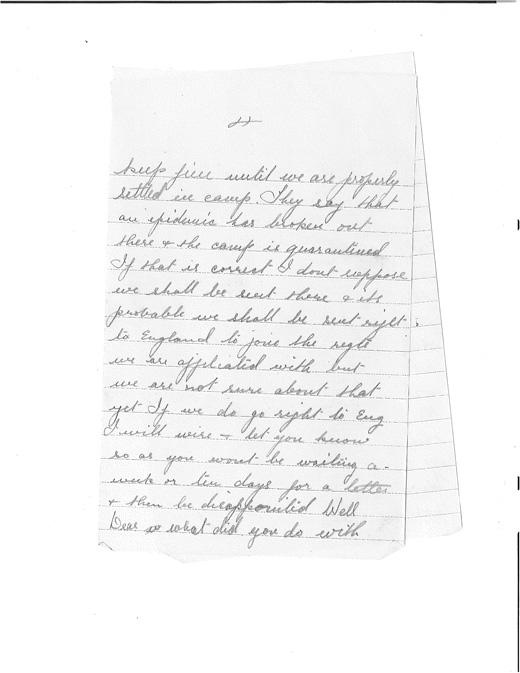 4
keep fine until we are properly
settled in camp. They say that
an epidemic has broken out
there + the camp is quarantined
If that is correct I dont suppose
we shall be sent there + its
probable we shall be sent right
to England to join the regts
we are affiliated with but
we are not sure about that
yet If we do go right to Eng
I will wire + let you know
so as you wont be waiting a
week or ten days for a letter
+ then be disappointed Well
Dear what did you do with